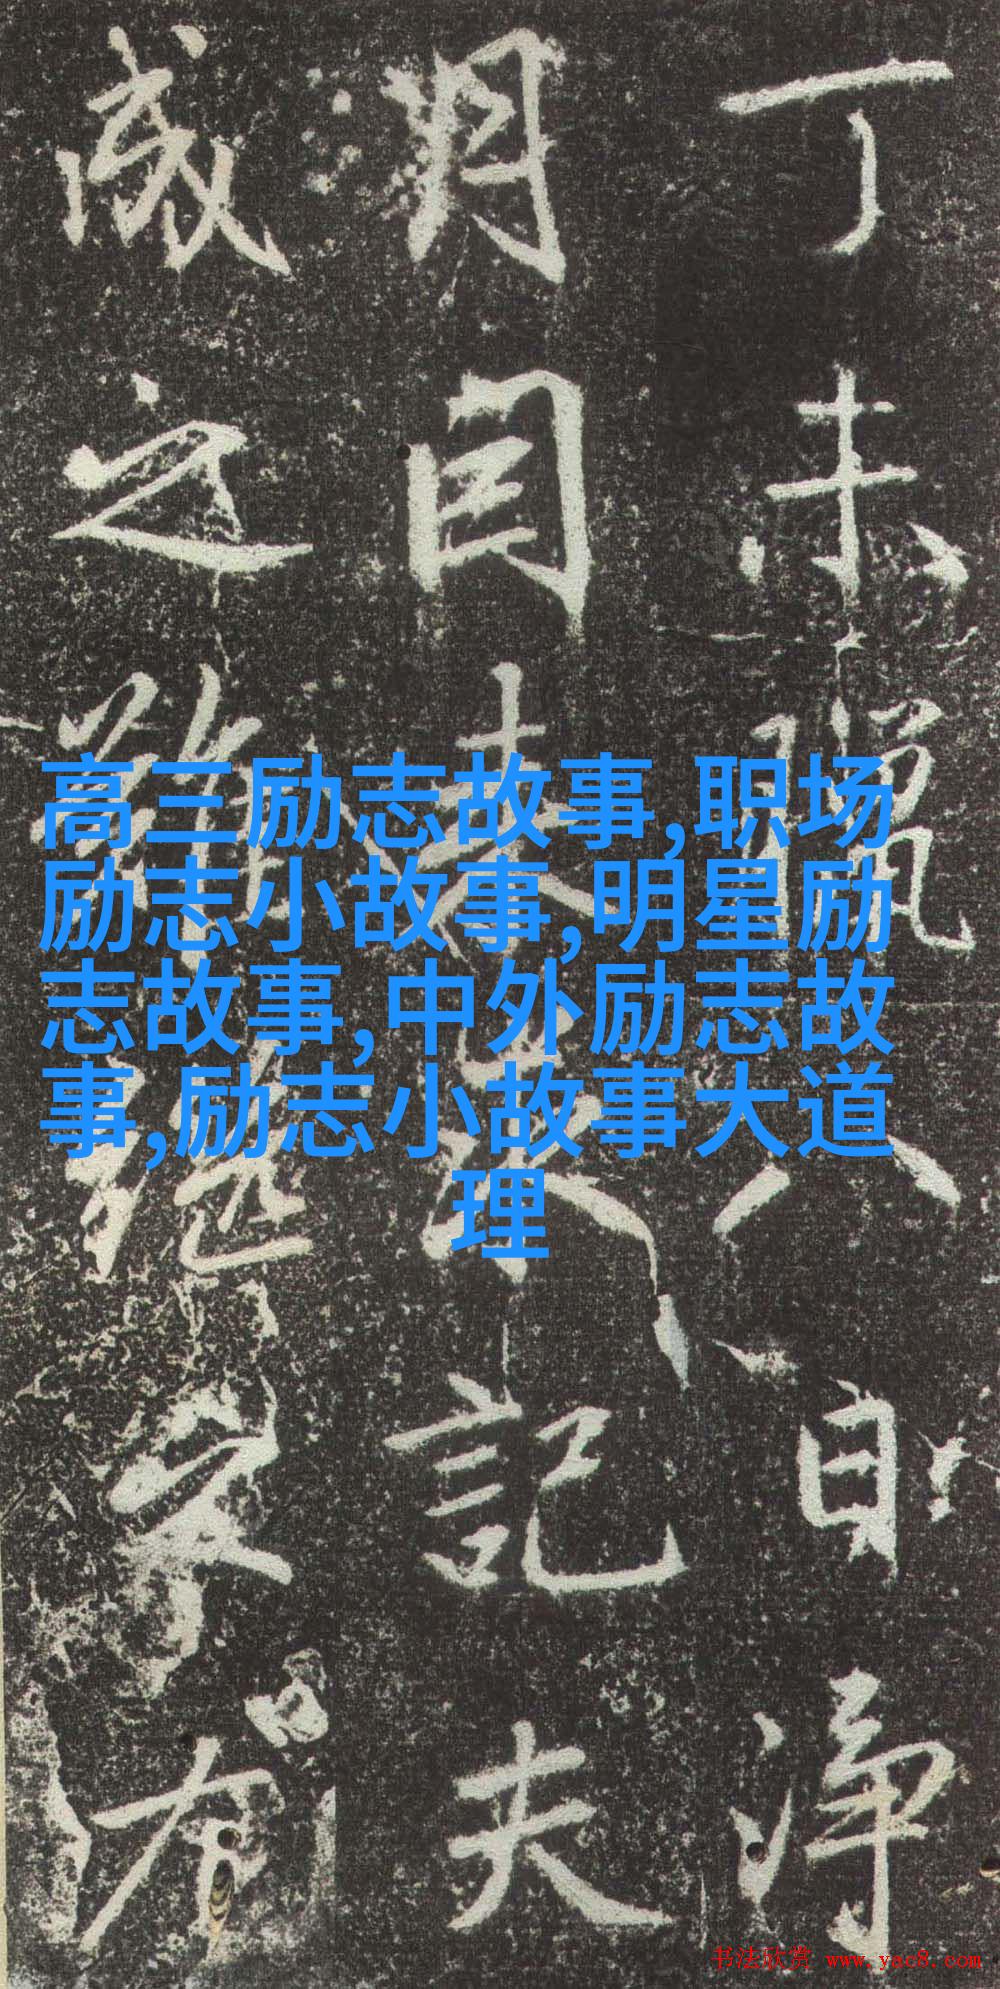 丁未臘八日淨
月來記夫
成之難
高三励志故事,职场
励志小故事,明星励
志故事,中外励志故
事,励志小故事大道
理
书法欣赏 www.yac8.com